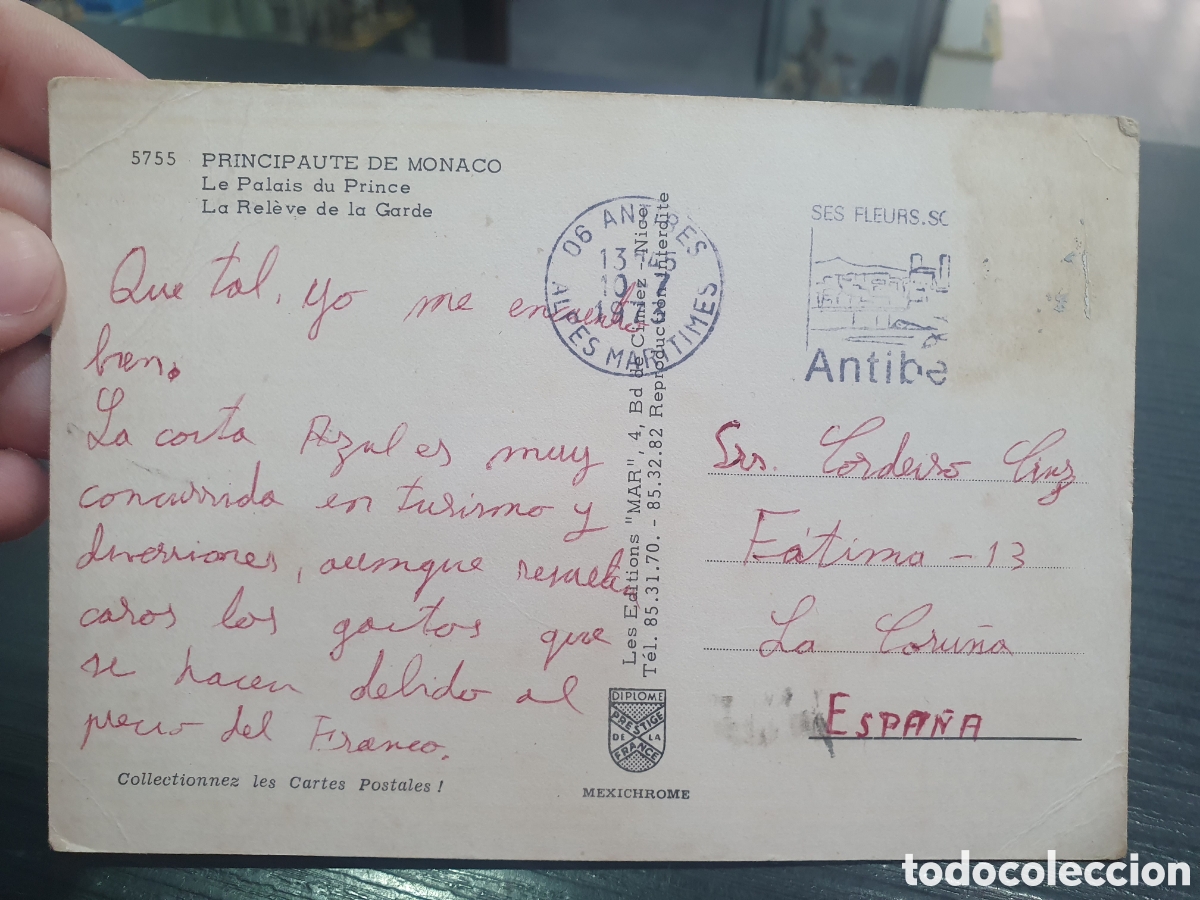 5755 PRINCIPAUTE DE MONACO
Le Palais du Prince
La Relève de la Garde
Que tal, yo me encuentro
bien.
La costa Azul es muy
concurrida en turismo y
diversiones, aumque resulta
caros los gastos que
se hacen debido al
precio del Franco.
Collectionnez les Cartes Postales !
06 ANTIBES
13 45
10
19
ALPES MARITIMES
Les Editions "MAR", 4, Bd de Cimiez - Nice
Tél. 85.31.70. - 85.32.82 Reproduction Interdite
DIPLOME
PRESTIGE
DE LA
FRANCE
MEXICHROME
SES FLEURS.SO
Antibe
Srs. Cordeiro Cruz
Fátima - 13
La Coruña
ESPAÑA
todocoleccion